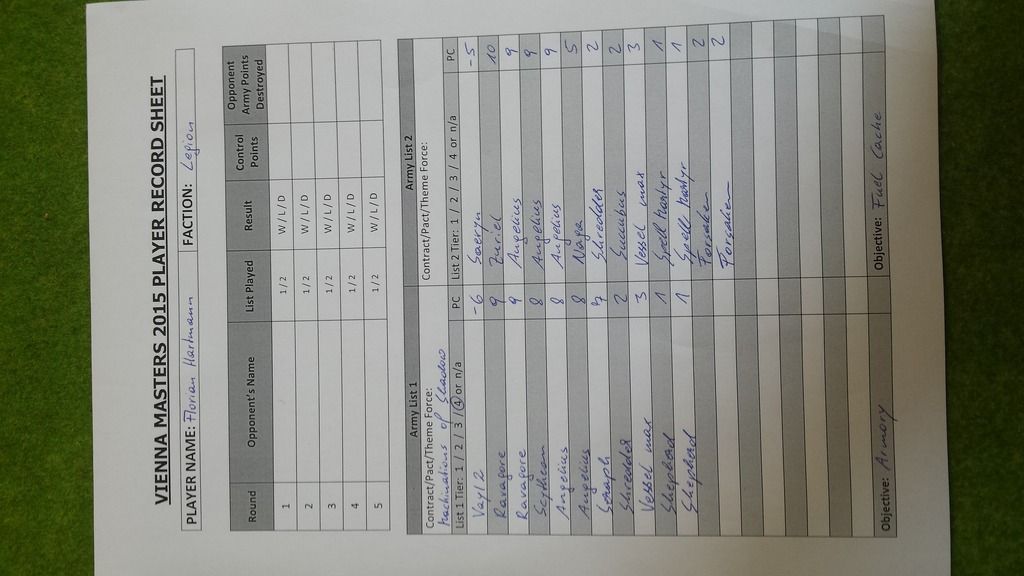 VIENNA MASTERS 2015 PLAYER RECORD SHEET
PLAYER NAME: Florian Hartmann FACTION: Legion
Round Opponent's Name List Played Result Control Points Opponent Army Points Destroyed
1 1/2 W/L/D
2 1/2 W/L/D
3 1/2 W/L/D
4 1/2 W/L/D
5 1/2 W/L/D
Army List 1 Army List 2
Contract/Pact/Theme Force: Contract/Pact/Theme Force:
Machinations of Shadow
List 1 Tier: 1 / 2 / 3 / 4 or n/a PC List 2 Tier: 1 / 2 / 3 / 4 or n/a PC
Vayl 2 -6 Saeryn -5
Ravagore 9 Zuriel 10
Ravagore 9 Angelius 9
Scythean 8 Angelius 9
Angelius 8 Angelius 9
Angelius 8 Naga 5
Seraph 7 Shredder 2
Shredder 2 Succubus 2
Vessel max 3 Vessel max 3
Shepherd 1 Spell Martyr 1
Shepherd 1 Spell Martyr 1
Forsaken 2
Forsaken 2
Objective: Armory Objective: Fuel Cache